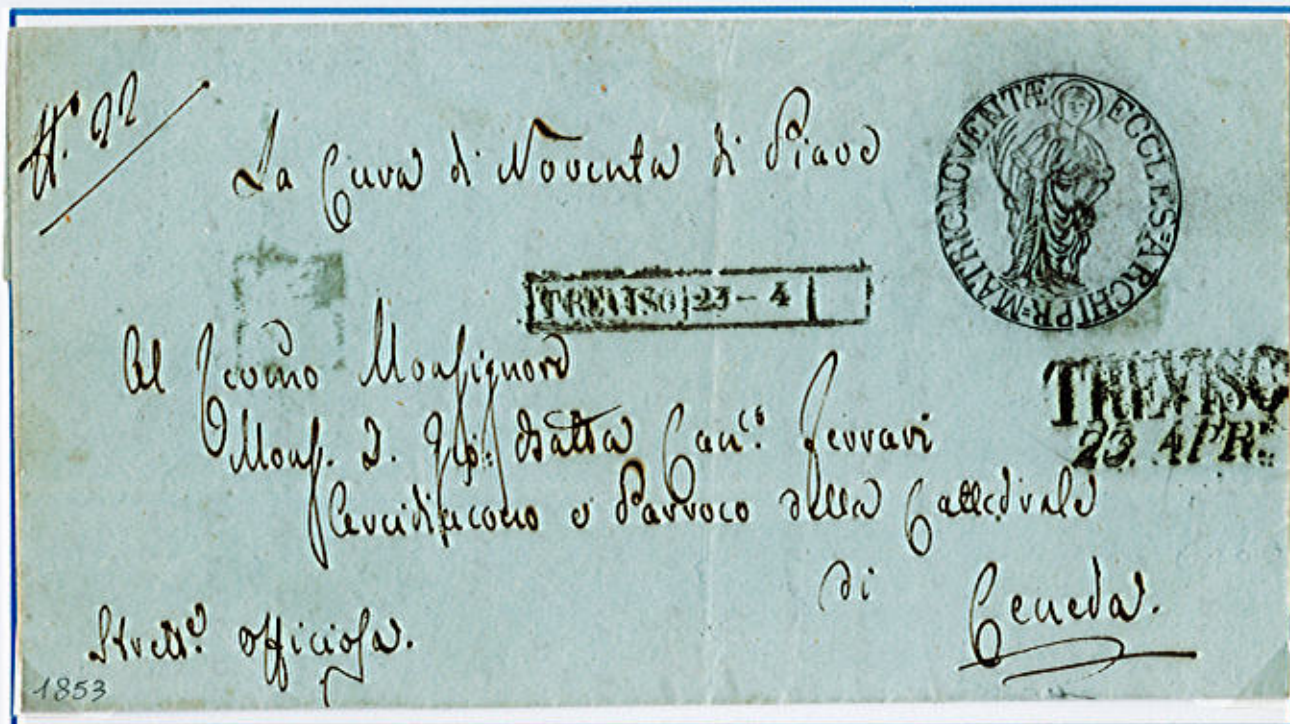 N.º 22
La Cura di Noventa di Piave
ECCLES=ARCHIPR=MATRIC NOVENTÆ
TREVISO 23-4
Al
Monsignore
TREVISO
23. APR.
Mons. Batta Can.co Ferrari
Arcidiacono e Parroco della Cattedrale
di Ceneda.
officiosa.
1853